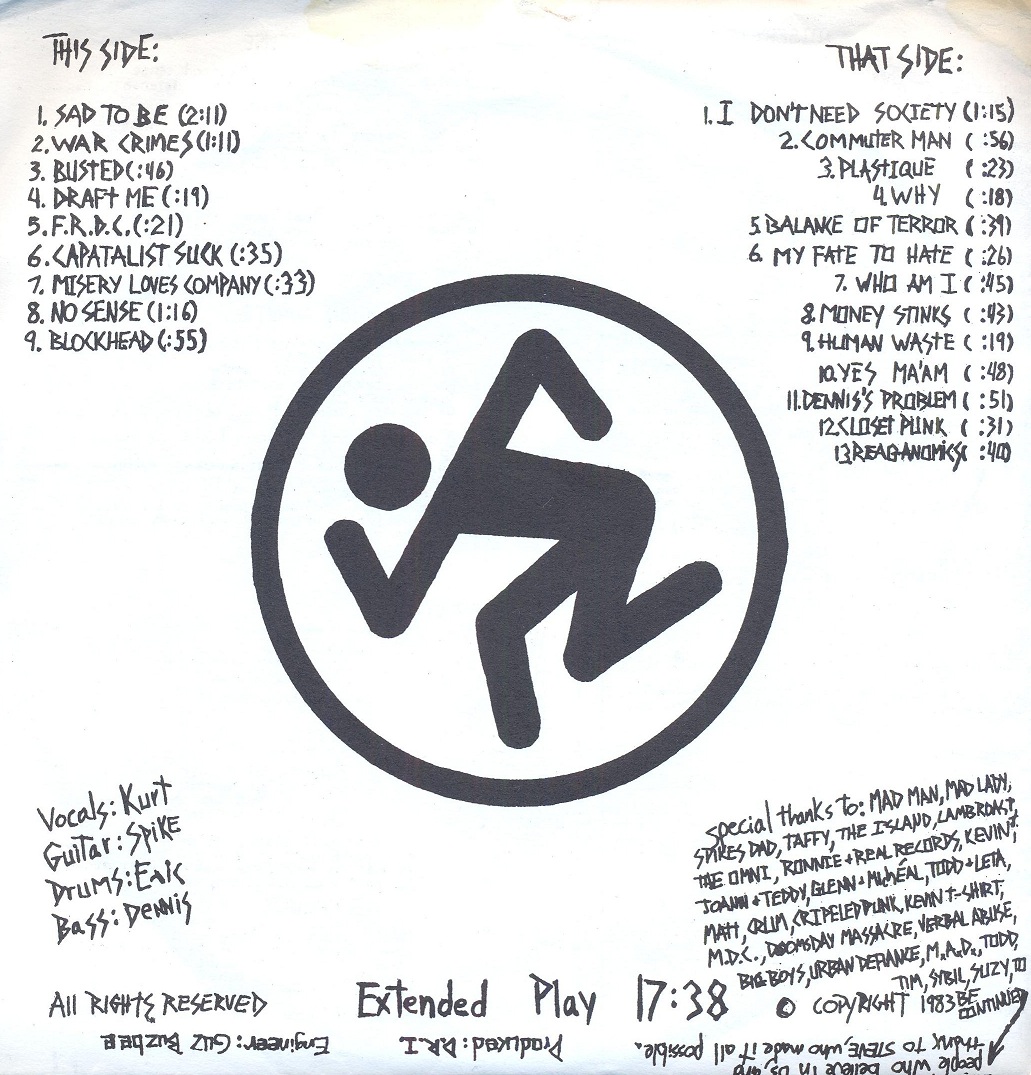 THIS SIDE:
1. SAD TO BE (2:11)
2. WAR CRIMES (1:11)
3. BUSTED (:46)
4. DRAFT ME (:19)
5. F.R.D.C. (:21)
6. CAPATALIST SUCK (:35)
7. MISERY LOVES COMPANY (:33)
8. NO SENSE (1:16)
9. BLOCKHEAD (:55)
THAT SIDE:
1. I DON'T NEED SOCIETY (1:15)
2. COMMUTER MAN ( :56)
3. PLASTIQUE ( :23)
4. WHY ( :18)
5. BALANCE OF TERROR ( :39)
6. MY FATE TO HATE ( :26)
7. WHO AM I ( :45)
8. MONEY STINKS ( :43)
9. HUMAN WASTE ( :19)
10. YES MA'AM ( :48)
11. DENNIS'S PROBLEM ( :51)
12. CLOSET PUNK ( :31)
13. REAGANOMICS( :40)
Vocals: Kurt
Guitar: Spike
Drums: Eric
Bass: Dennis
special thanks to: MAD MAN, MAD LADY,
SPIKES DAD, TAFFY, THE ISLAND, LAMBROAST,
THE OMNI, RONNIE + REAL RECORDS, KEVIN
JOANN + TEDDY, GLENN + MICHÉAL, TODD + LETA,
MATT, CRUM, CRIPELED PUNK, KEVIN T-SHIRT,
M.D.C., DOOMSDAY MASSACRE, VERBAL ABUSE,
BIG BOYS, URBAN DEFIANCE, M.A.D., TODD,
TIM, SYBIL, SUZY, TO
BE
CONTINUED
All RIGHTS RESERVED
Extended Play 17:38
© COPYRIGHT 1983
Engineer: GUZ Buzbee
Produced: D.R.I.
people who believe in us, and
thank to STEVE, who made it all possible.